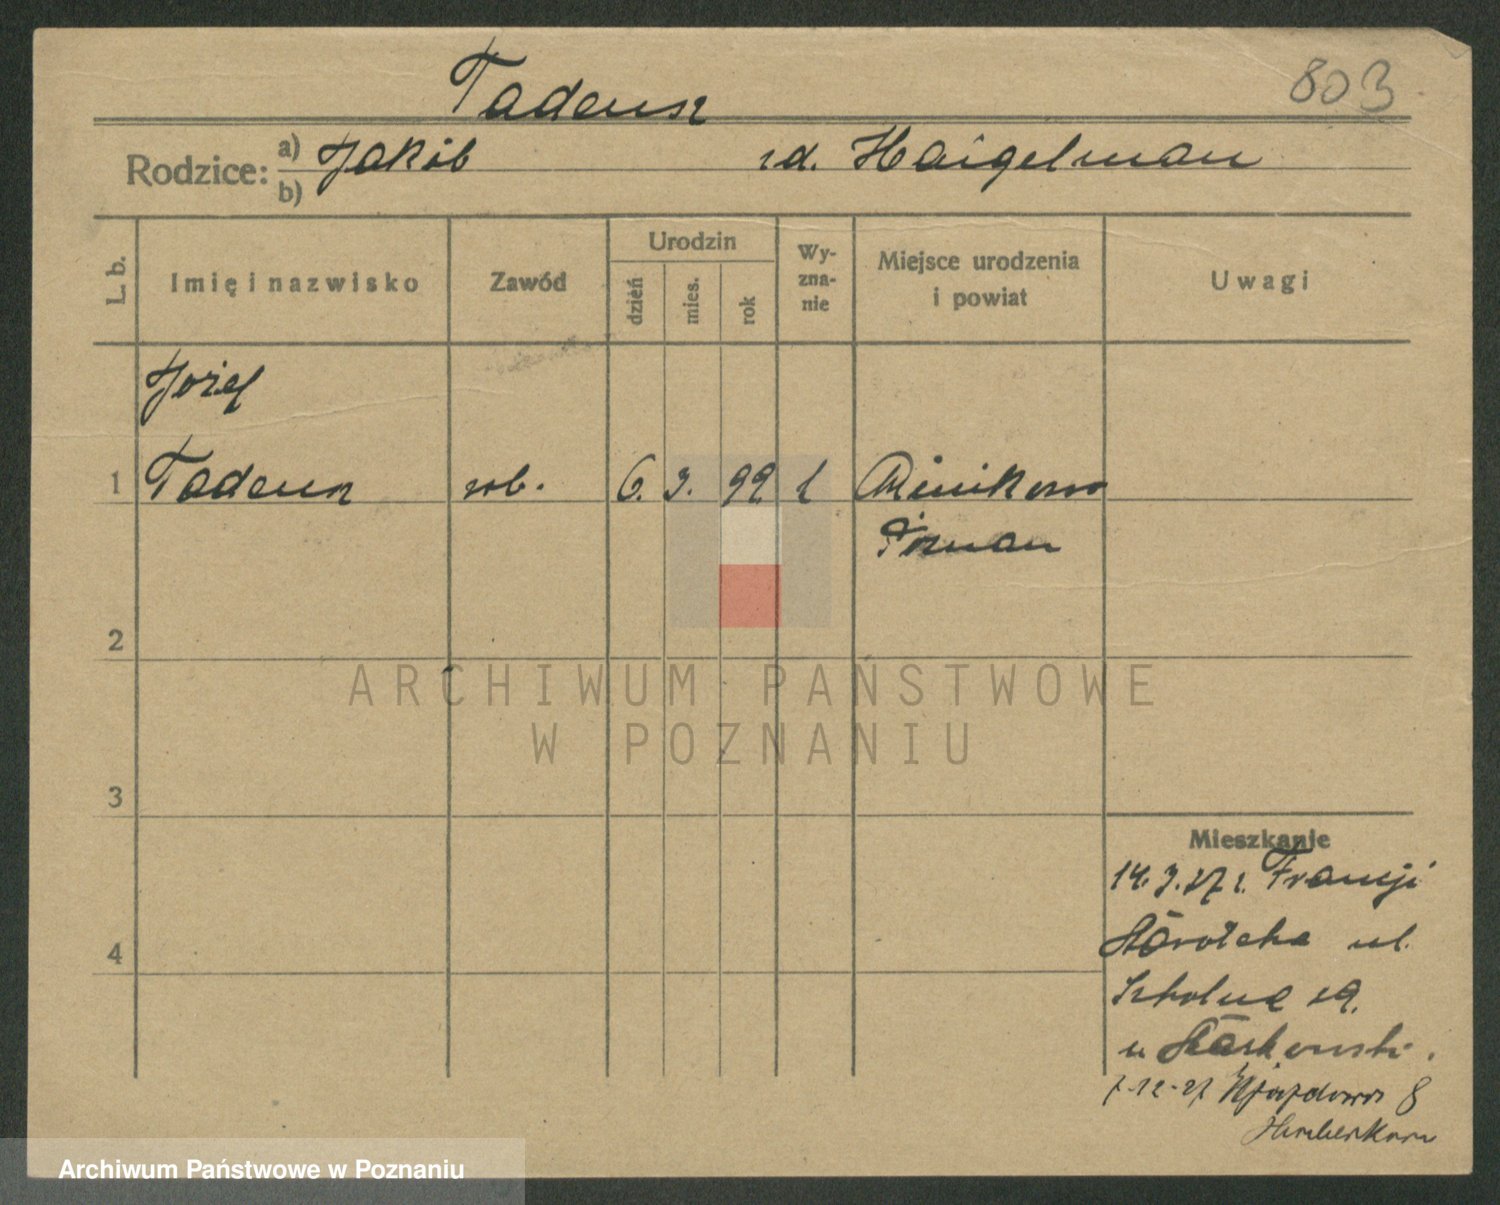 Tadeusz
803
Rodzice: a) Jakób zd. Haigelman
b)
L. b. Imię i nazwisko Zawód Urodzin dzień mies. rok Wy-zna-nie Miejsce urodzenia i powiat Uwagi
Józef
1 Tadeusz rob. 6. 3. 99 1
Poznan
2
ARCHIWUM PAŃSTWOWE
W POZNANIU
3
Mieszkanie
14. 3. 27 z Francji
4 ul.
Szkolna 19.
u
7-12-27 8
Archiwum Państwowe w Poznaniu